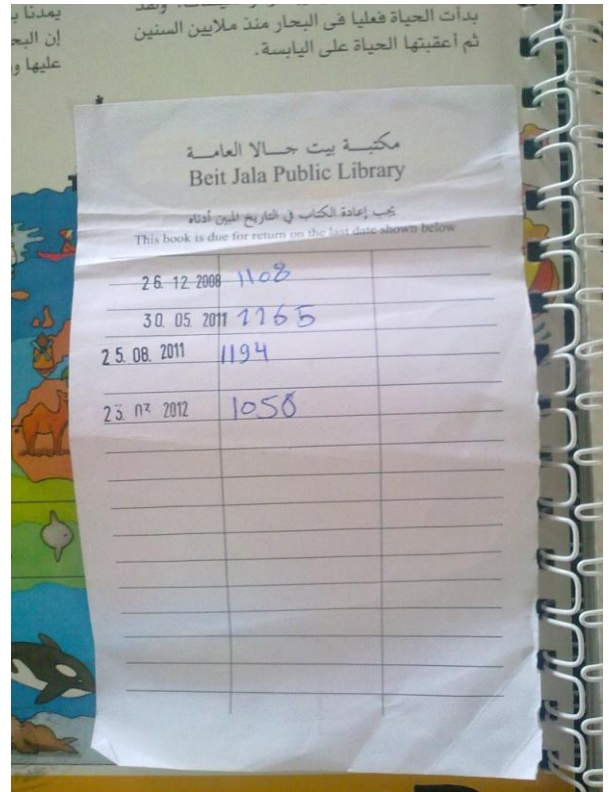 يمدنا
بدأت الحياة فعليا فى البحار منذ ملايين السنين
إن البحـ
ثم أعقبتها الحياة على اليابسة.
عليها و
مكتبـــة بيت جـــالا العامـــة
Beit Jala Public Library
يجب إعادة الكتاب في التاريخ المبين أدناه
This book is due for return on the last date shown below
26. 12. 2008 1108
30. 05. 2011 1165
25. 08. 2011 1194
2012 1050